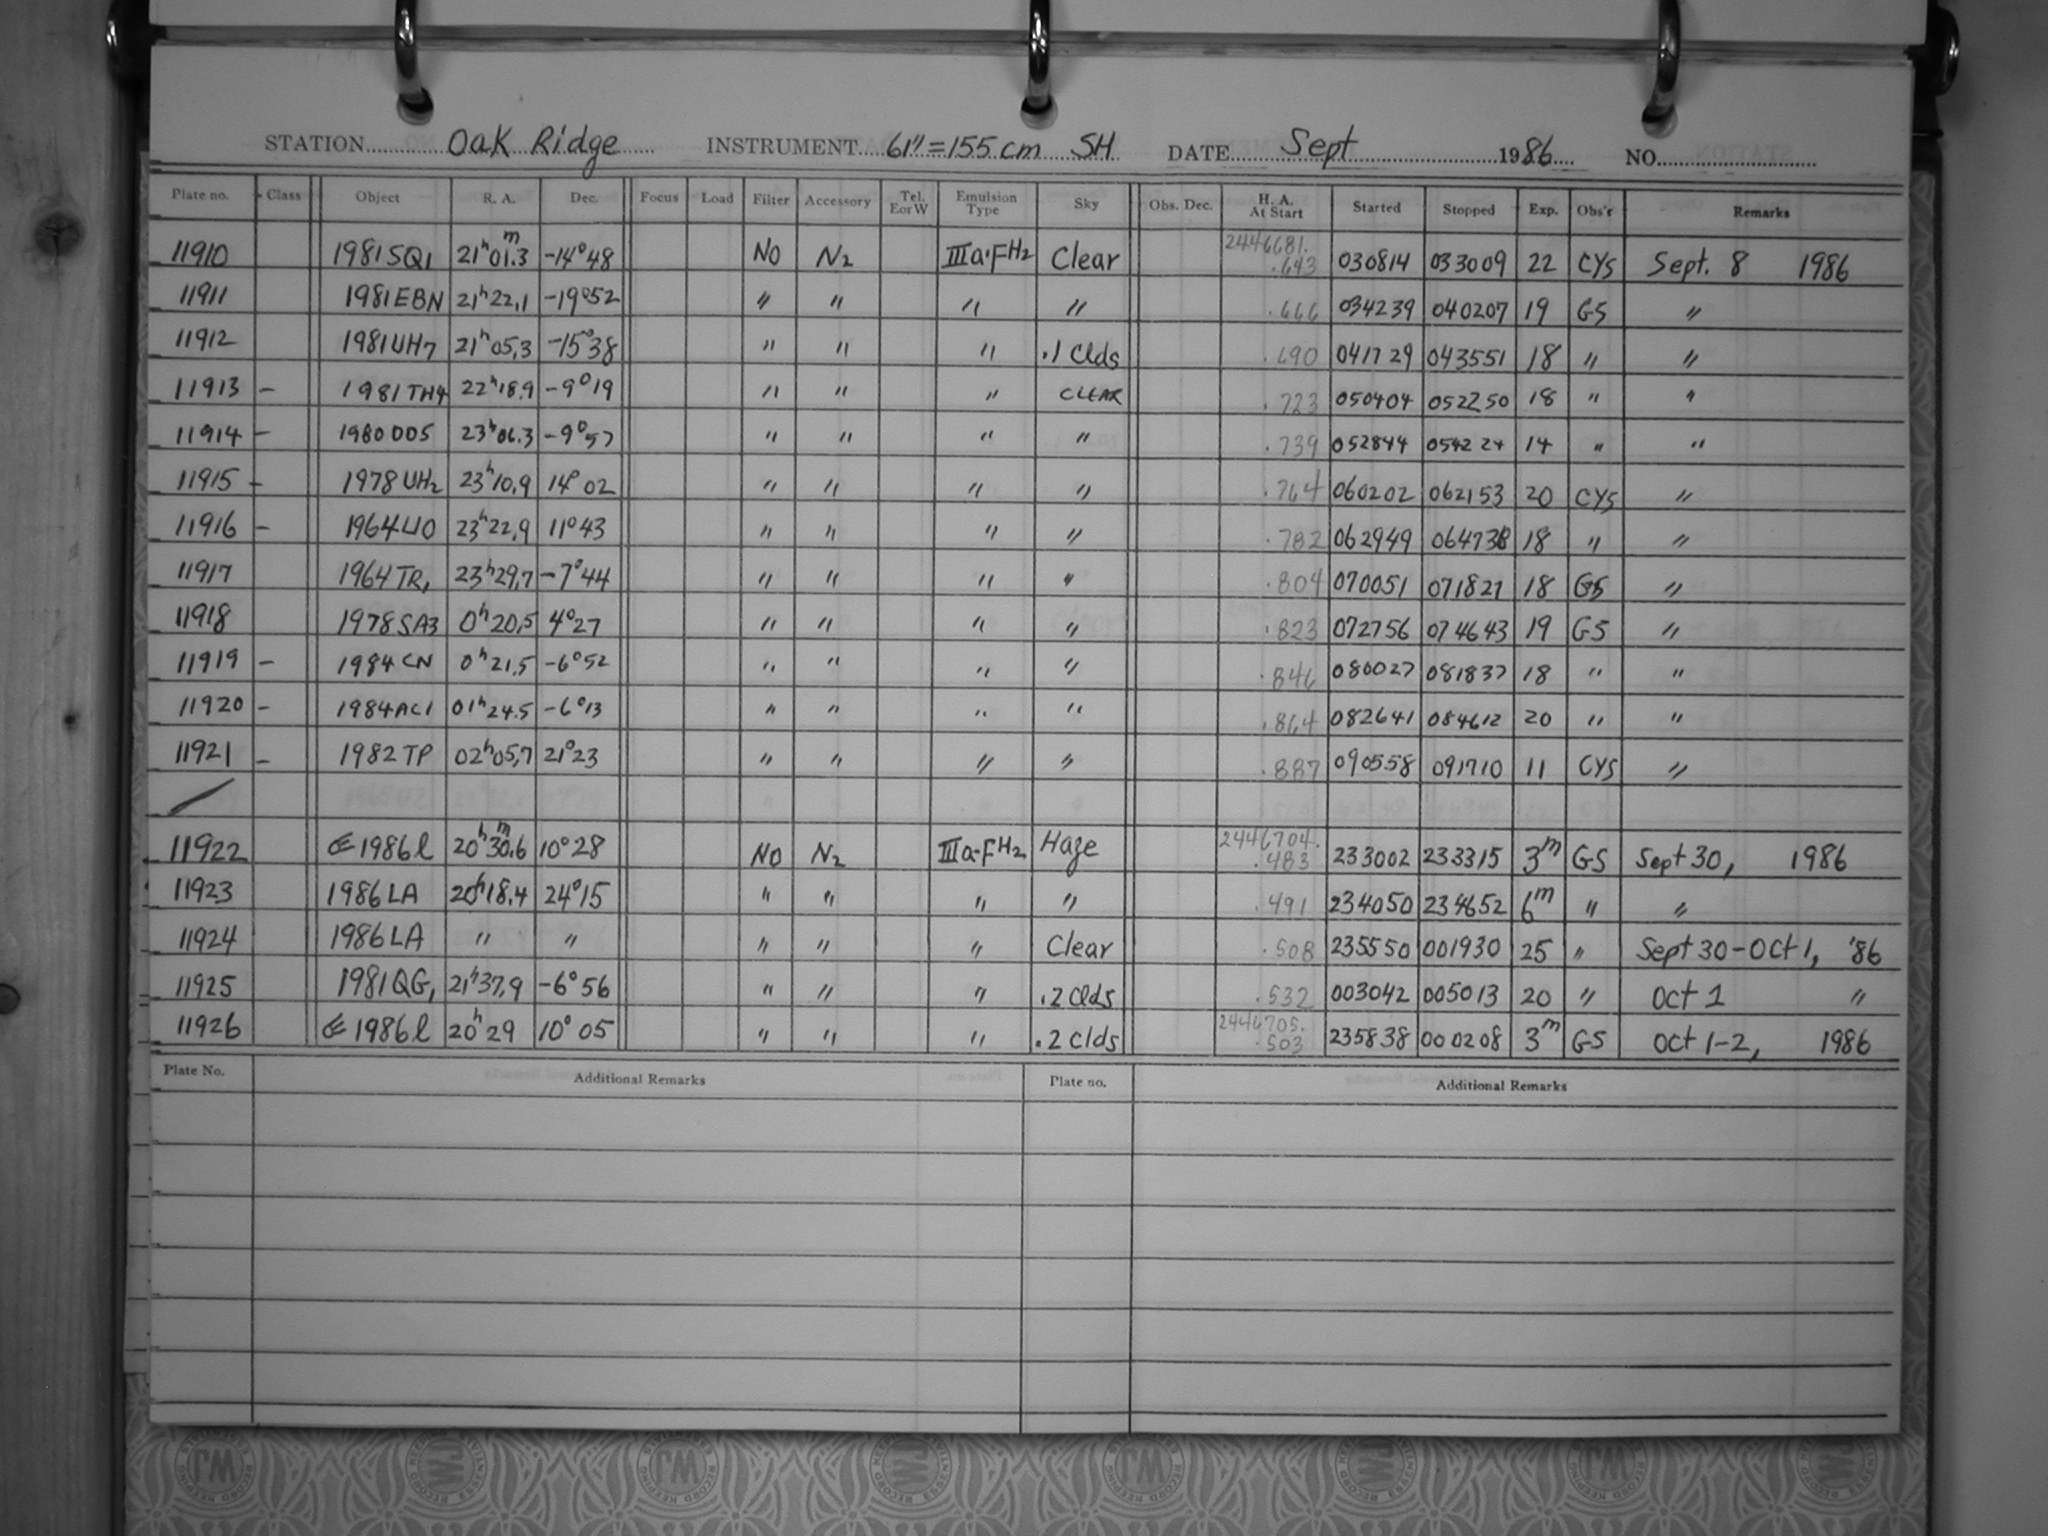 STATION Oak Ridge INSTRUMENT 61"=155 cm SH DATE Sept 1986 NO.
Plate no. Class Object R. A. Dec. Focus Load Filter Accessory Tel. E or W Emulsion Type Sky Obs. Dec. H. A. At Start Started Stopped Exp. Obs'r Remarks
11910 1981SQ1 21h01.3m -14°48 NO N2 IIIa-FH2 Clear 2446681. .643 030814 033009 22 CYS Sept. 8 1986
11911 1981EBN 21h22,1 -19°52 " " " " .666 034239 040207 19 GS "
11912 1981UH7 21h05,3 -15°38 " " " .1 Clds .690 041729 043551 18 " "
11913 - 1981TH4 22h18.9 -9°19 " " " CLEAR .723 050404 052250 18 " "
11914 - 1980DO5 23h06.3 -9°57 " " " " .739 052844 054224 14 " "
11915 - 1978UH2 23h10,9 14°02 " " " " .764 060202 062153 20 CYS "
11916 - 1964UO 23h22,9 11°43 " " " " .782 062949 064738 18 " "
11917 1964TR1 23h29,7 -7°44 " " " " .804 070051 071827 18 GS "
11918 1978SA3 0h20,5 4°27 " " " " .823 072756 074643 19 GS "
11919 - 1984CN 0h21,5 -6°52 " " " " .846 080027 081837 18 " "
11920 - 1984AC1 01h24.5 -6°13 " " " " .864 082641 084612 20 " "
11921 - 1982TP 02h05,7 21°23 " " " " .887 090558 091710 11 CYS "
11922 1986l 20h30.6m 10°28 NO N2 IIIa-FH2 Haze 2446704. .483 233002 233315 3m GS Sept 30, 1986
11923 1986LA 20h18.4 24°15 " " " " .491 234050 234652 6m " "
11924 1986LA " " " " " Clear .508 235550 001930 25 " Sept 30-Oct 1, '86
11925 1981QG1 21h37,9 -6°56 " " " .2 Clds .532 003042 005013 20 " Oct 1 "
11926 1986l 20h29 10°05 " " " .2 Clds 2446705. .503 235838 000208 3m GS Oct 1-2, 1986
Plate No. Additional Remarks Plate no. Additional Remarks